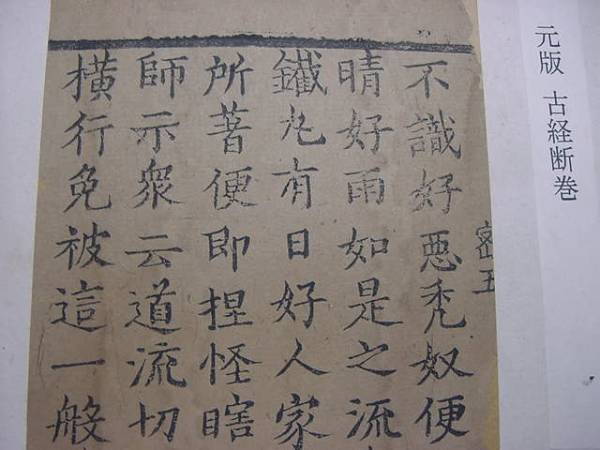 元版 古経断巻
密五
不識好悪禿奴便
晴好雨如是之流
鐵丸有日好人家
所著便即捏怪瞎
師示衆云道流切
橫行免被這一般